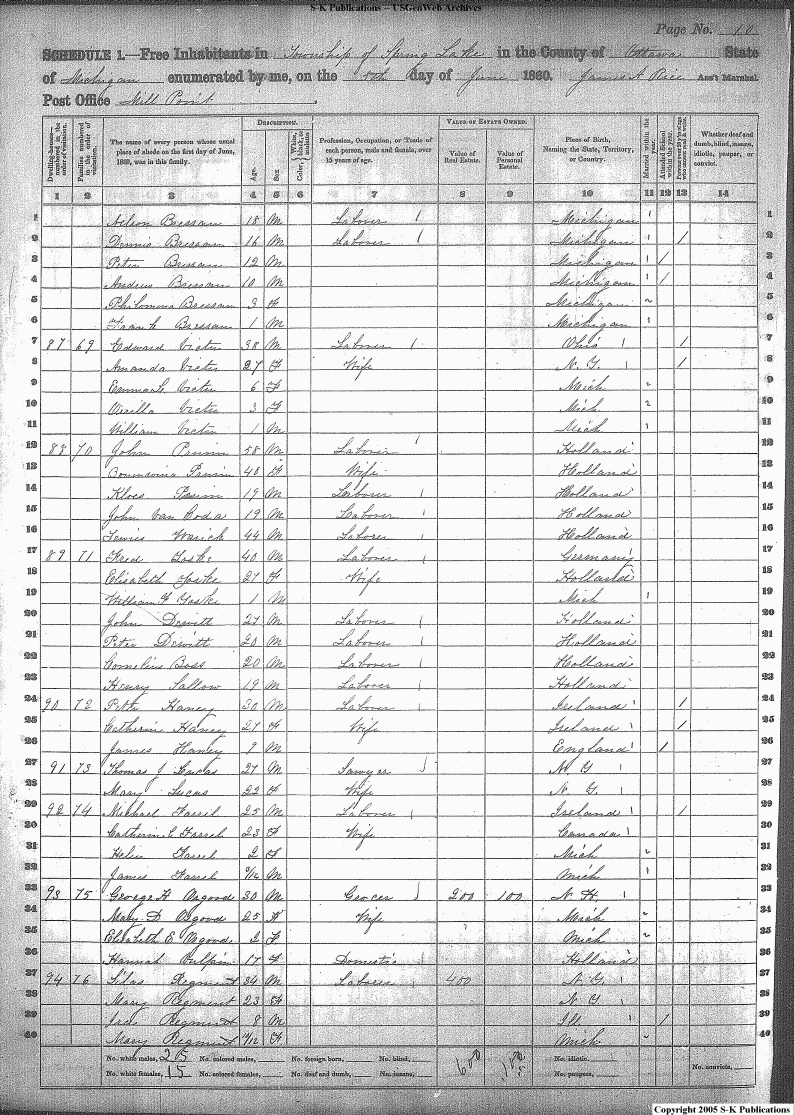 S-K Publications -- USGenWeb Archives
Page No. 10
SCHEDULE 1.—Free Inhabitants in Township of Spring Lake in the County of Ottawa State
of Michigan enumerated by me, on the day of June 1860. James A Rice Ass't Marshal
Post Office Mill Point.
Dwelling-houses— numbered in the order of visitation.
Families numbered in the order of visitation.
The name of every person whose usual place of abode on the first day of June, 1860, was in this family.
DESCRIPTION.
Age.
Sex
Color, White, black, or mulatto
Profession, Occupation, or Trade of each person, male and female, over 15 years of age.
VALUE OF ESTATE OWNED.
Value of Real Estate.
Value of Personal Estate.
Place of Birth, Naming the State, Territory, or Country.
Married within the year.
Attended School within the year.
Whether deaf and dumb, blind, insane, idiotic, pauper, or convict.
1 2 3 4 5 6 7 8 9 10 11 12 13 14
1 Nelson Bressam 18 M Laborer Michigan 1
2 Dennis Bressam 16 M Laborer Michigan 1 2
3 Peter Bressam 12 M Michigan 1 3
4 Andrew Bressam 10 M Michigan 1 4
5 Philomina Bressam 3 F Michigan 5
6 Frank Bressam 1 M Michigan 6
7 87 69 Edward Victer 38 M Laborer Ohio 1 7
8 Amanda Victer 27 F Wife N. Y. 1 8
9 Emma Victer 6 F Mich 9
10 Victer 3 F Mich 10
11 William Victer 1 M Mich 11
12 88 70 John 58 M Laborer Holland 12
13 48 F Wife Holland 13
14 Kloes 19 M Laborer Holland 14
15 John Van 19 M Laborer Holland 15
16 Lewis Warich 44 M Laborer Holland 16
17 89 71 Fred Toske 40 M Laborer Germany 17
18 Elisabeth Toske 27 F Wife Holland 18
19 William F Toske 1 M Mich 19
20 John Dewitt 27 M Laborer Holland 20
21 Peter Dewitt 20 M Laborer Holland 21
22 Cornelius Boss 20 M Laborer Holland 22
23 Henry Sallow 19 M Laborer Holland 23
24 90 72 Peter Haney 30 M Laborer Ireland 1 24
25 Catherin Haney 27 F Wife Ireland 1 25
26 James Hanley 9 M England 1 26
27 91 73 Thomas J Lucas 27 M Sawyer N. Y. 27
28 Mary Lucas 22 F Wife N. Y. 28
29 92 74 Michael Farrel 25 M Laborer Ireland 1 29
30 Catherin E Farrel 23 F Wife Canada 30
31 Helen Farrel 2 F Mich 31
32 James Farrel /12 M Mich 32
33 93 75 George H Osgood 30 M Grocer 200 100 N. H. 33
34 Mary F Osgood 25 F Wife Mich 34
35 Elisabeth E Osgood 2 F Mich 35
36 Hannah Vulpin 17 F Domestic Holland 36
37 94 76 Silas Regment 34 M Laborer 400 N. Y. 37
38 Mary Regment 23 F N. Y. 38
39 Regment 8 M Ill. 1 39
40 Mary Regment /12 F Mich 40
No. white males, 25 No. colored males, No. foreign born, No. blind, 600 100 No. idiotic,
No. white females, 15 No. colored females, No. deaf and dumb, No. insane, No. paupers, No. convicts,
Copyright 2005 S-K Publications